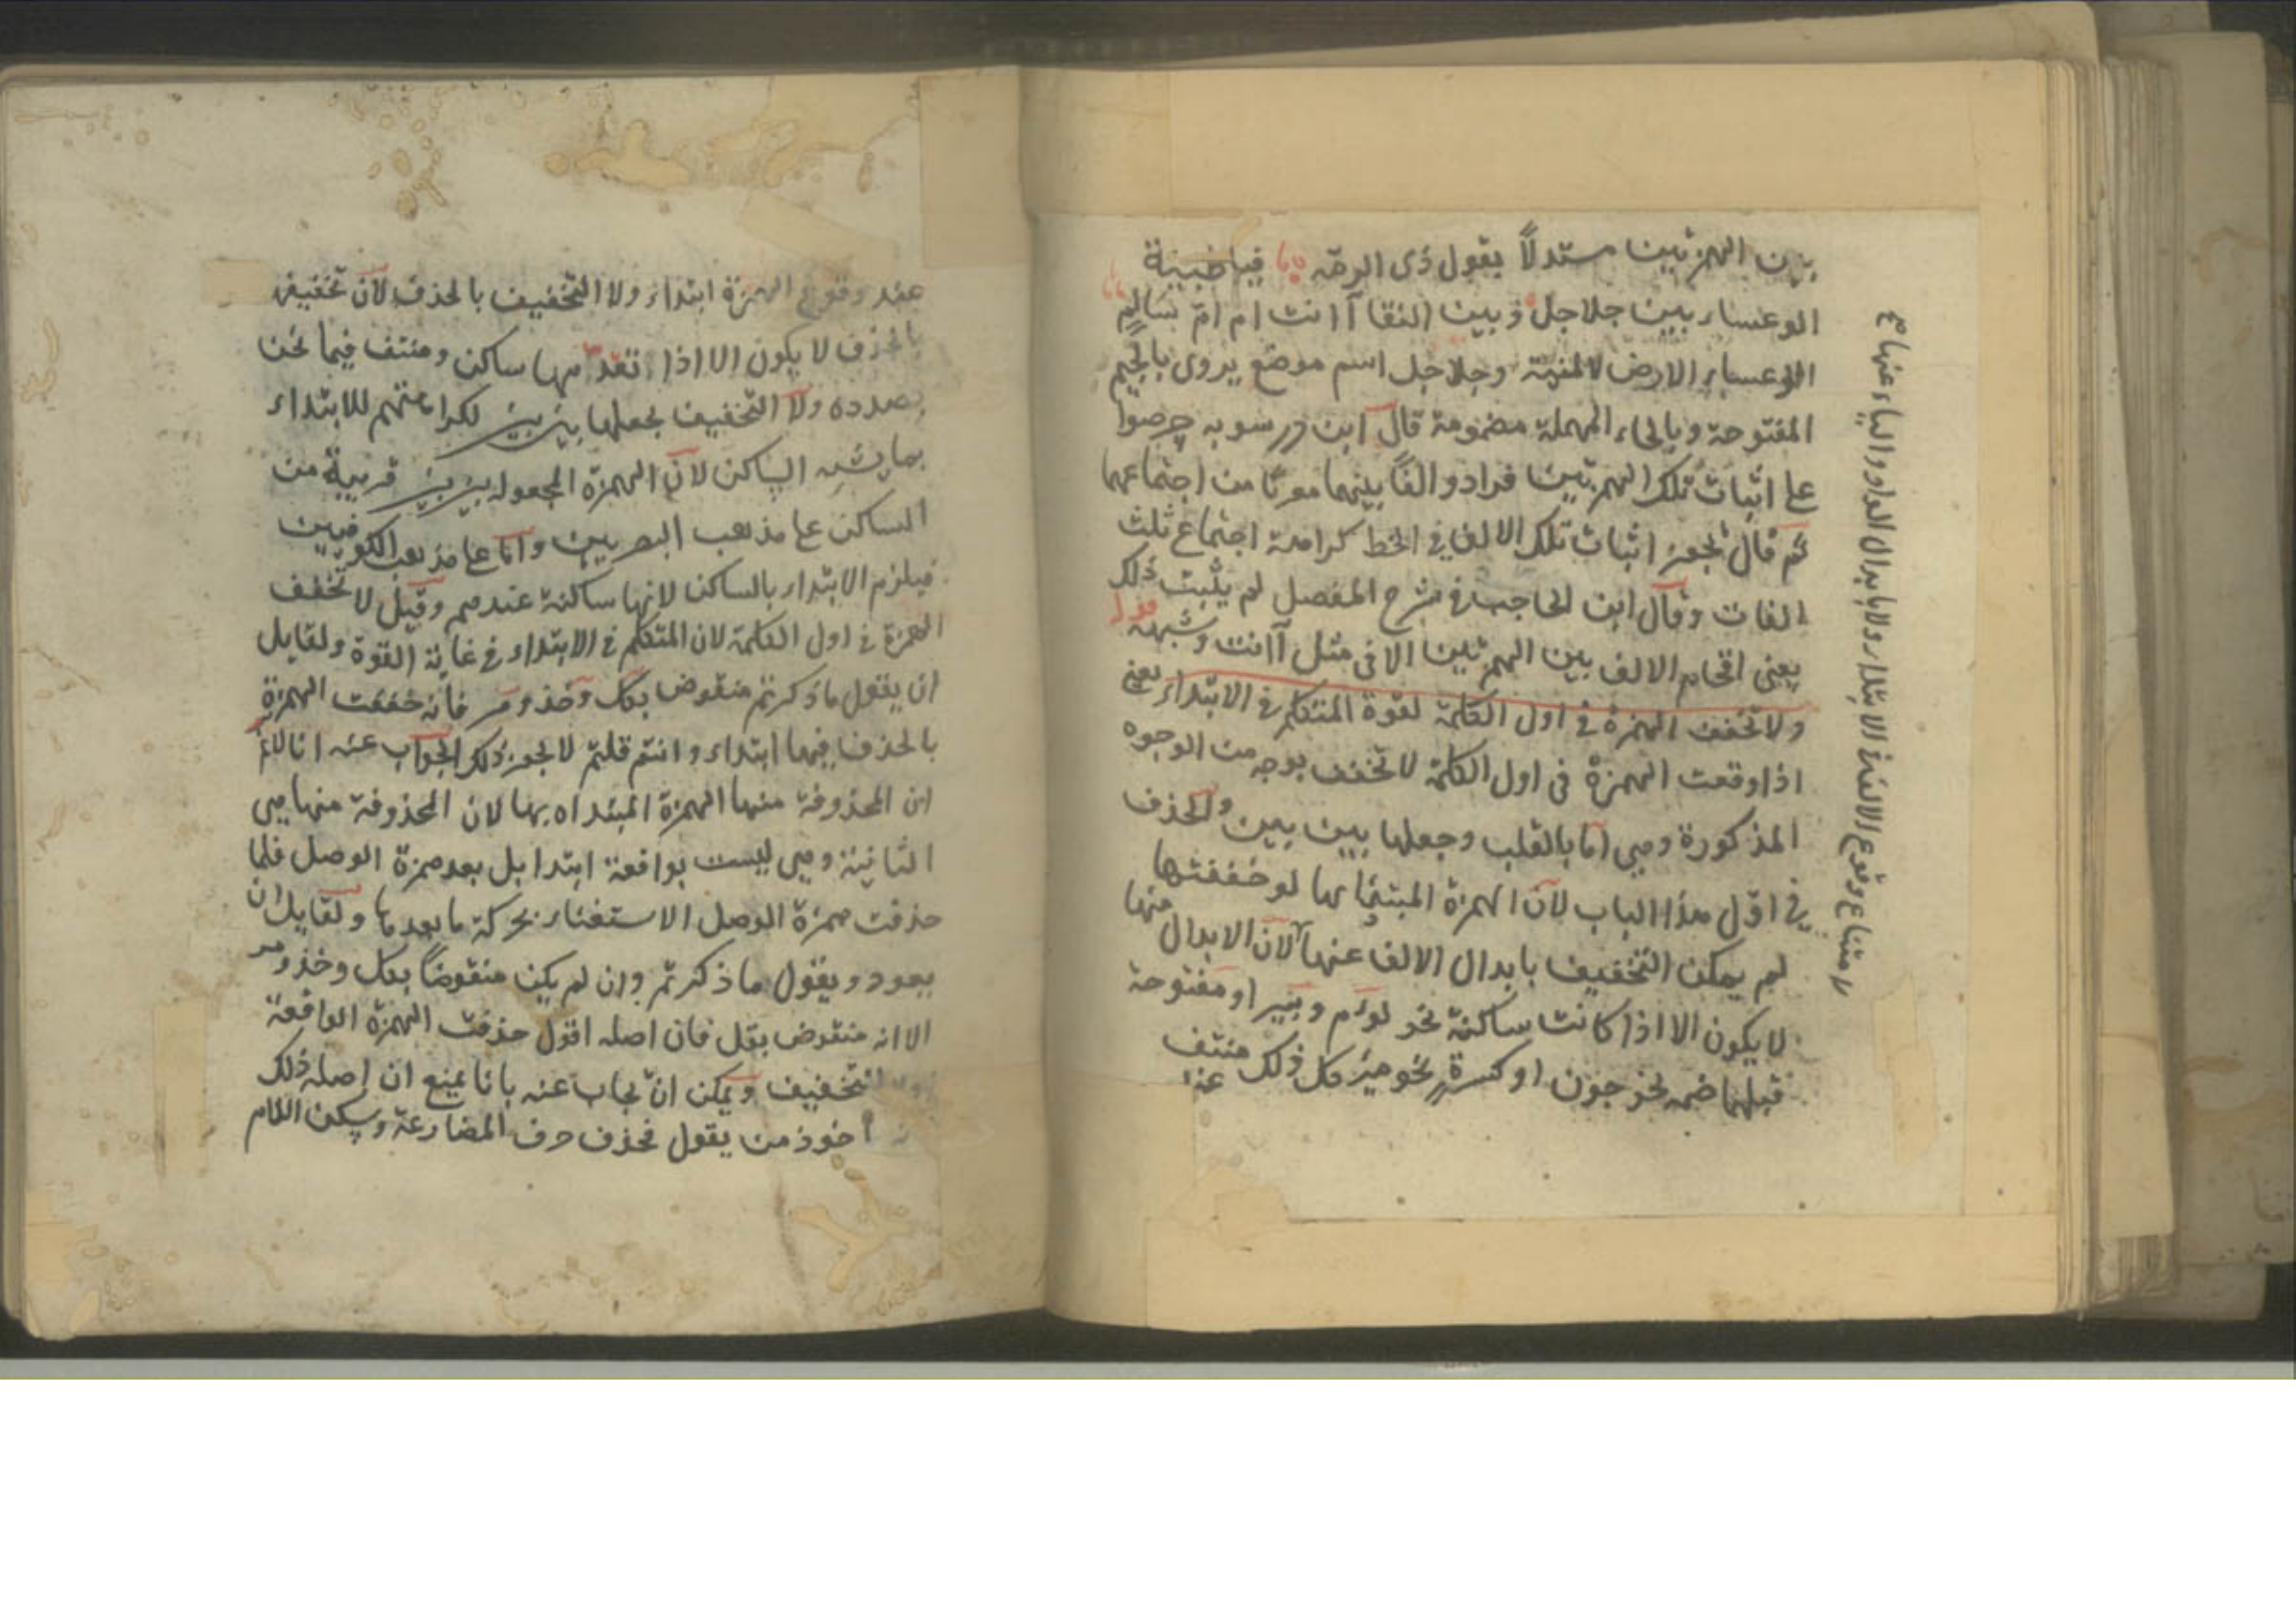 بين الهمزتين مستدلاً بقول ذى الرمة فيا ظبية
الوعساء بين جلاجل وبين النقا آانت ام امّ سالم
الوعساء الارض وجلاجل اسم موضع يروى بالجيم
المفتوحة وبالحاء المهملة مضمومة قال ابن درسويه حرصوا
على اثبات تلك الهمزتين فزادوا الفاً بينهما من اجتماعهما
ثم قال يجوز اثبات تلك الالف فى الخط كراهة اجتماع ثلث
الفات وقال ابن الحاجب فى شرح المفصل لم يثبت ذلك
يعنى اقحام الالف بين الهمزتين الا فى مثل آانت وشبهه قوله
ولا تخفف الهمزة فى اول الكلمة لقوة المتكلم فى الابتداء يعنى
اذا وقعت الهمزة فى اول الكلمة لا تخفف بوجه من الوجوه
المذكورة وهى اما بالقلب وجعلها بين بين والحذف
فى اول هذا الباب لان الهمزة بها لو خففتها
لم يمكن التخفيف بابدال الالف عنها لان الابدال منها
لا يكون الا اذا كانت ساكنة نحو لوم وبير او مفتوحة
قبلها ضمه نحو جون او كسرة نحو مير كل ذلك منتف
عند
لامتناع وقوع الالف فى الابتداء ولا بابدال الواو والياء عنها
عند وقوع الهمزة ابتداء ولا التخفيف بالحذف لان تخفيفها
بالحذف لا يكون الا اذا تقدمها ساكن ومنتف فيما نحن
بصدده ولا التخفيف بجعلها بين بين لكراهتهم للابتداء
بما يشبه الساكن لان الهمزة المجعولة بين بين قريبة من
الساكن على مذهب البصريين واما على مذهب الكوفيين
فيلزم الابتداء بالساكن لانها ساكنة عندهم وقيل لا تخفف
الهمزة فى اول الكلمة لان المتكلم فى الابتداء فى غاية القوة ولقايل
ان يقول ما ذكرتم منقوض بكل وخذ ومر فانه خففت الهمزة
بالحذف فيها ابتداء وانتم قلتم لا يجوز ذلك الجواب عنه انا لا نم
ان المحذوفة منها الهمزة المبتداه بها لان المحذوفة منها هى
الثانية وهى ليست بواقعة ابتدا بل بعد همزة الوصل فلما
حذفت همزة الوصل الاستغناء بحركة ما بعدها ولقايل ان
يعود ويقول ما ذكرتم وان لم يكن منقوضاً بكل وخذ ومر
الا انه منقوض بقل فان اصله اقول حذفت الهمزة الواقعة
اولا للتخفيف ويمكن ان يجاب عنه بانا نمنع ان اصله ذلك
ماخوذ من يقول فحذف حرف المضارعة وسكن اللام